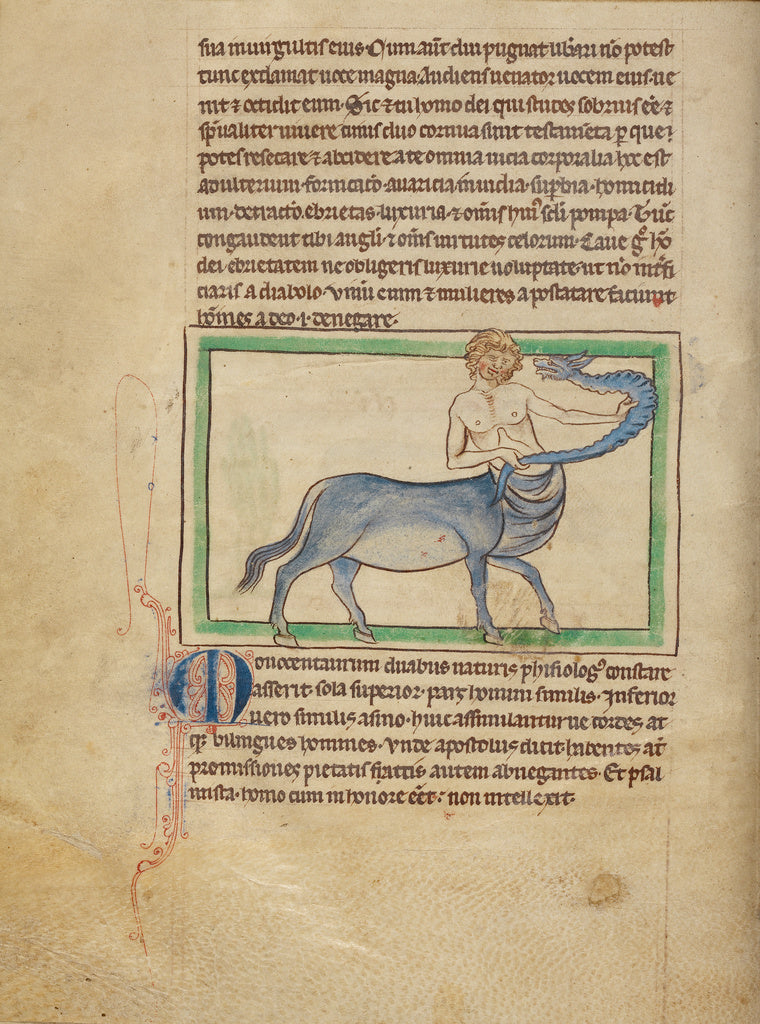 sua in uirgultis eius. Cum aut̄ diu pugnat ubari nō potest
tunc exclamat uoce magna. Audiens uenator uocem eius ue
nit ⁊ occidit eum. Sic ⁊ tu homo dei qui studes sobrius eē ⁊
sp̄ualiter uiuere cuius duo cornua sunt testam̄eta per que
potes resecare ⁊ abcidere a te omnia uicia corporalia hoc est
adulterium. fornicatō. auaricia. inuidia. suꝑbia. homicidi
um. detractō. ebrietas. luxuria. ⁊ om̄is hui᷒ sc̄li pompa. Tūc
congaudent tibi angl̄i ⁊ om̄s uirtutes celorum. Caue gͦ hō
dei ebrietatem ne obligeris luxurie uoluptate. ut nō int̄fi
ciaris a diabolo. Vinū enim ⁊ mulieres apostatare faciunt
hōmes a deo .i. denegare.
Monocentaurum duabus naturis phisiologꝰ constare
asserit. sola superior pars homini similis. Inferior
uero similis asino. huic assimilantur uecordes at
qꝫ bilingues homines. Vnde apostolus dicit. habentes at̄
promissiones pietatis. autem abnegantes. Et psal
mista. homo cum in honore eēt. non intellexit.